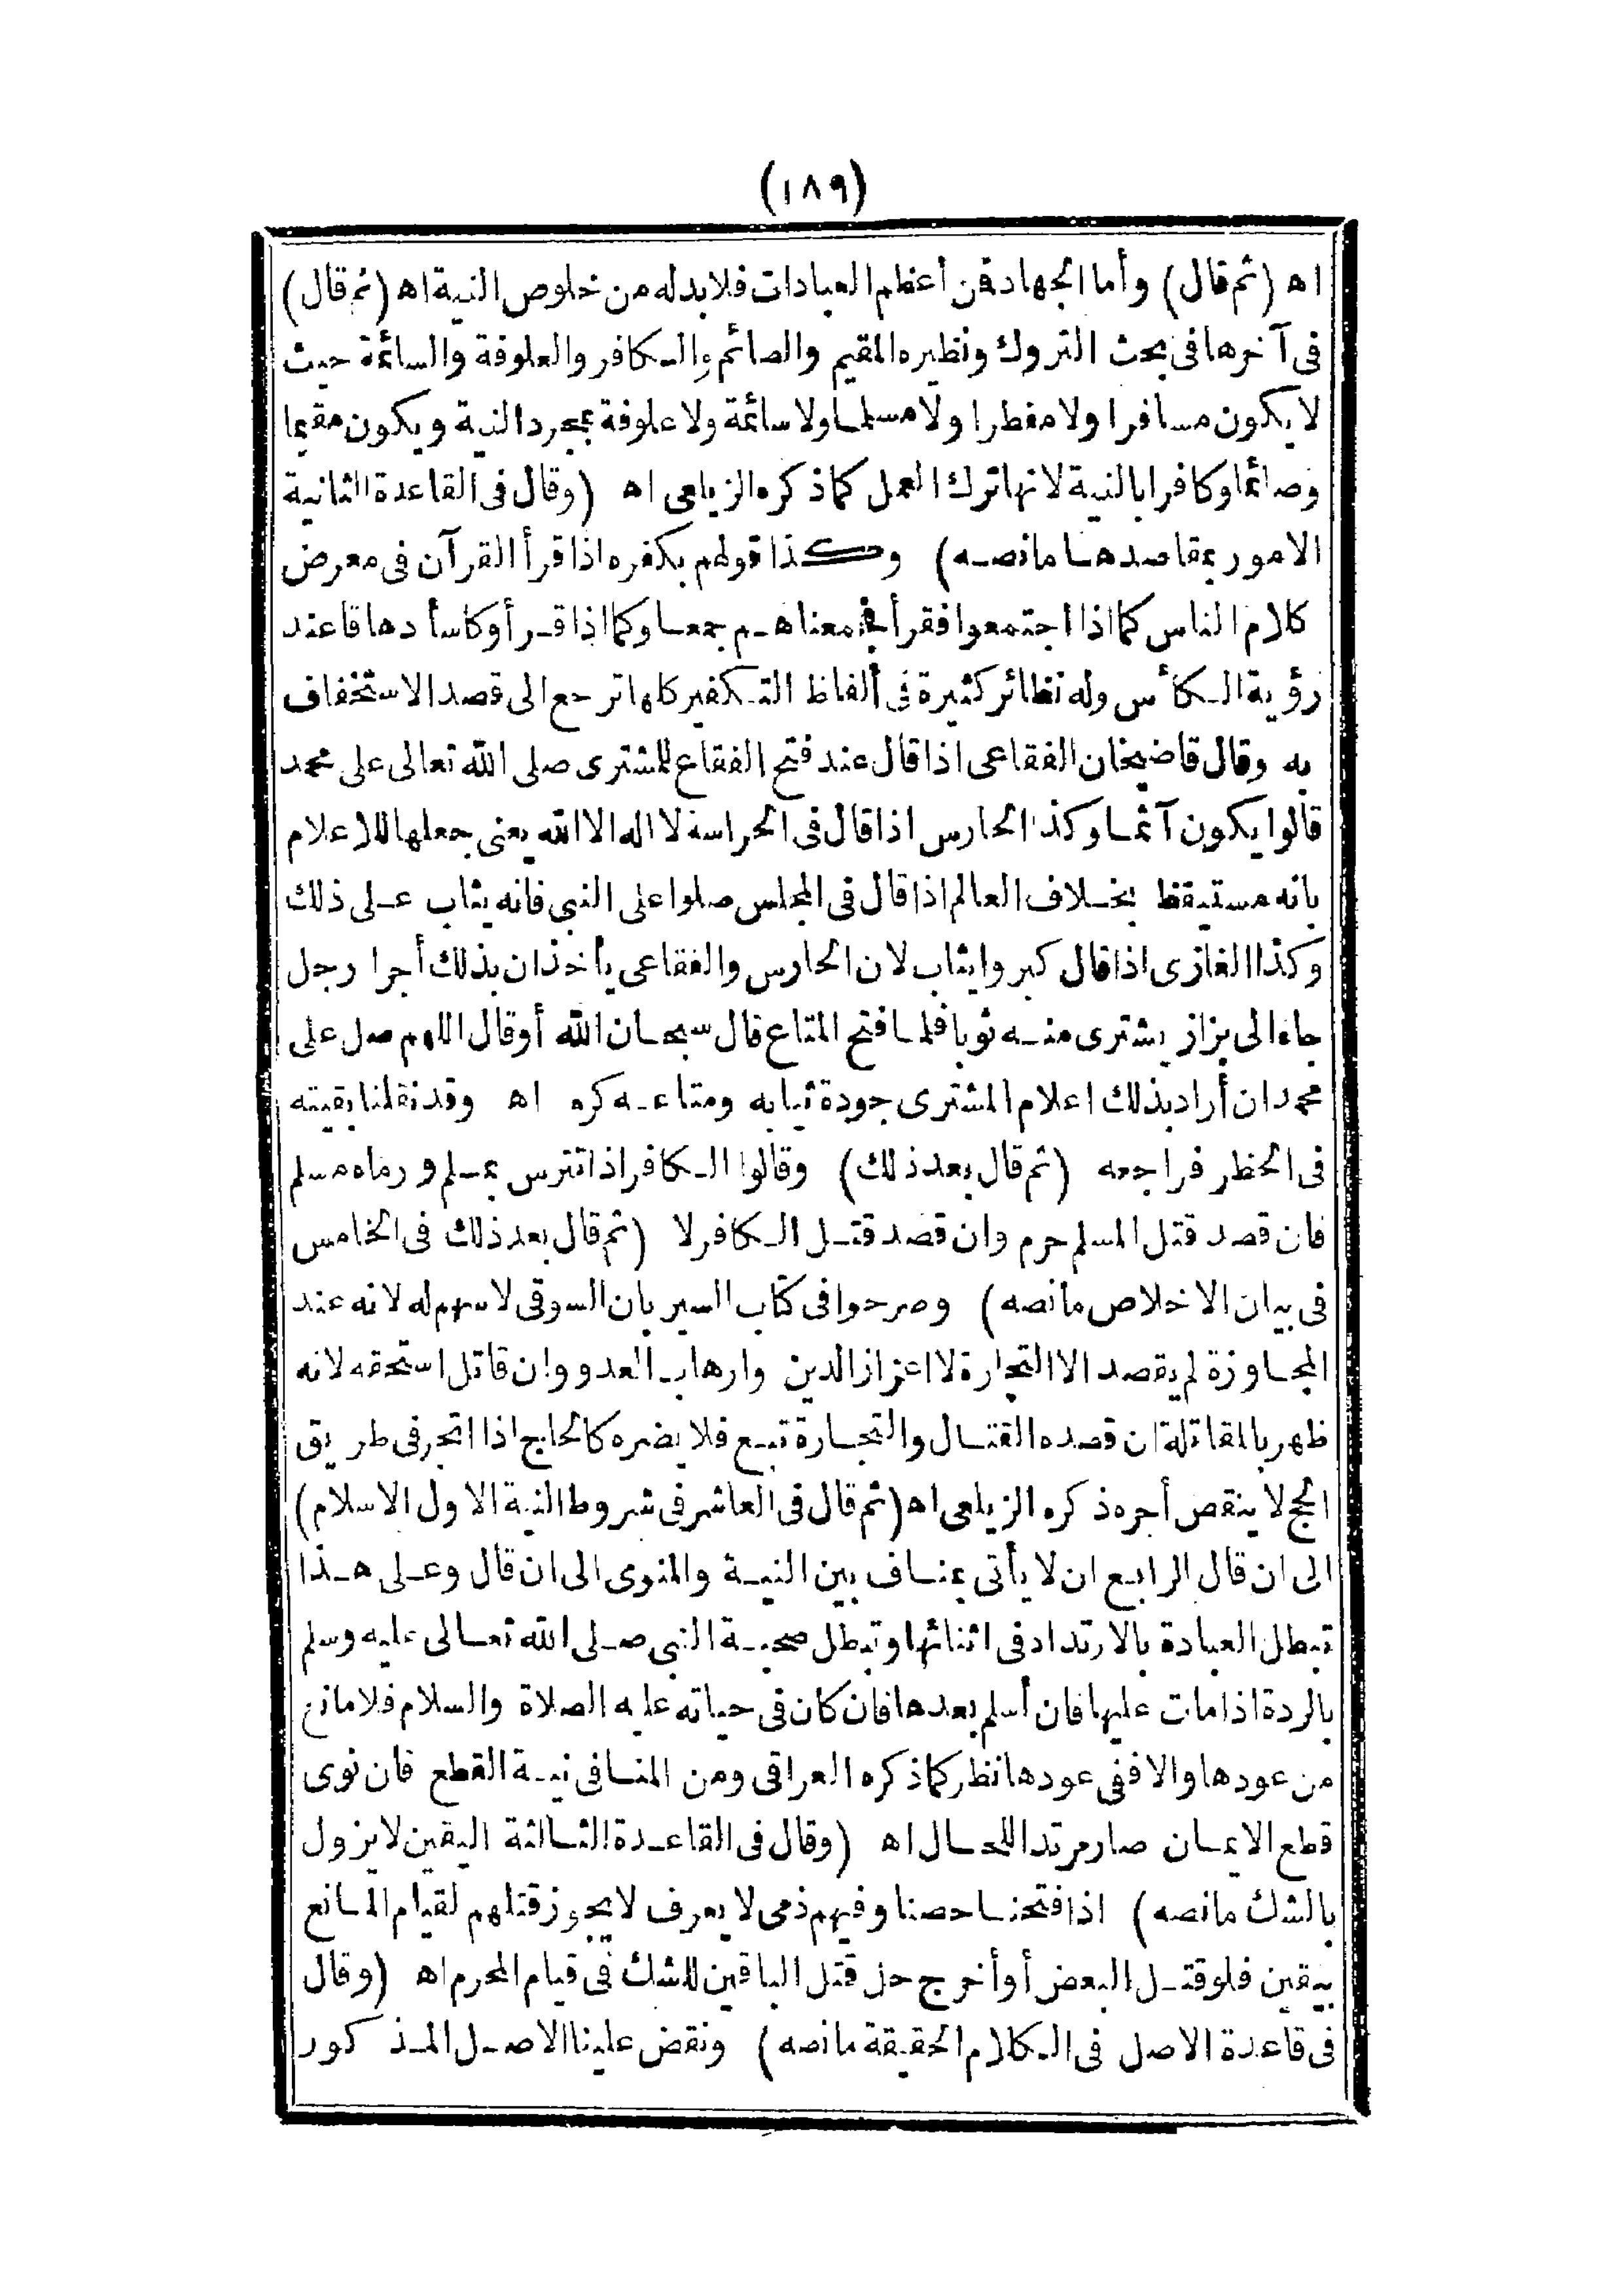 (١٨٩)
اه (ثم قال) وأما الجهاد فمن أعظم العبادات فلا بد له من خلوص النية اه (ثم قال)
فى آخرها فى بحث التروك ونظيره المقيم والصائم والكافر والعلوفة والسائمة حيث
لا يكون مسافرا ولا مفطرا ولا مسلما ولا سائمة ولا علوفة بمجرد النية ويكون مقيما
وصائما وكافرا بالنية لانها ترك العمل كما ذكره الزيلعى اه (وقال فى القاعدة الثانية
الامور بمقاصدها مانصه) وكذا قولهم بكفره اذا قرأ القرآن فى معرض
كلام الناس كما اذا اجتمعوا فقرأ فجمعناهم جمعا وكما اذا قرأ وكاسأ دهاقا عند
رؤية الكأس وله نظائر كثيرة فى ألفاظ التكفير كلها ترجع الى قصد الاستخفاف
به وقال قاضيخان الفقاعى اذا قال عند فتح الفقاع للمشترى صلى الله تعالى على محمد
قالوا يكون آثما وكذا الحارس اذا قال فى الحراسة لا اله الا الله يعنى جعلها للاعلام
بانه مستيقظ بخلاف العالم اذا قال فى المجلس صلوا على النبى فانه يثاب على ذلك
وكذا الغازى اذا قال كبروا يثاب لان الحارس والفقاعى يأخذان بذلك أجرا رجل
جاء الى بزاز يشترى منه ثوبا فلما فتح المتاع قال سبحان الله أو قال اللهم صل على
محمد ان أراد بذلك اعلام المشترى جودة ثيابه ومتاعه كره اه وقد نقلنا بقيته
فى الحظر فراجعه (ثم قال بعد ذلك) وقالوا الكافر اذا تترس بمسلم ورماه مسلم
فان قصد قتل المسلم حرم وان قصد قتل الكافر لا (ثم قال بعد ذلك فى الخامس
فى بيان الاخلاص مانصه) وصرحوا فى كتاب السير بان السوقى لا سهم له لانه عند
المجاوزة لم يقصد الا التجارة لا اعزاز الدين وارهاب العدو وان قاتل استحقه لانه
ظهر بالمقاتلة ان قصده القتال والتجارة تبع فلا يضره كالحاج اذا اتجر فى طريق
الحج لا ينقص أجره ذكره الزيلعى اه (ثم قال فى العاشر فى شروط النية الاول الاسلام)
الى ان قال الرابع ان لا يأتى بمناف بين النية والمنوى الى ان قال وعلى هذا
تبطل العبادة بالارتداد فى اثنائها وتبطل صحبة النبى صلى الله تعالى عليه وسلم
بالردة اذا مات عليها فان أسلم بعدها فان كان فى حياته عليه الصلاة والسلام فلا مانع
من عودها والا ففى عودها نظر كما ذكره العراقى ومن المنافى نية القطع فان نوى
قطع الايمان صار مرتدا للحال اه (وقال فى القاعدة الثالثة اليقين لا يزول
بالشك مانصه) اذا فتحنا حصنا وفيهم ذمى لا يعرف لا يجوز قتلهم لقيام المانع
بيقين فلو قتل البعض أو أخرج حل قتل الباقين للشك فى قيام المحرم اه (وقال
فى قاعدة الاصل فى الكلام الحقيقة مانصه) ونقض علينا الاصل المذكور